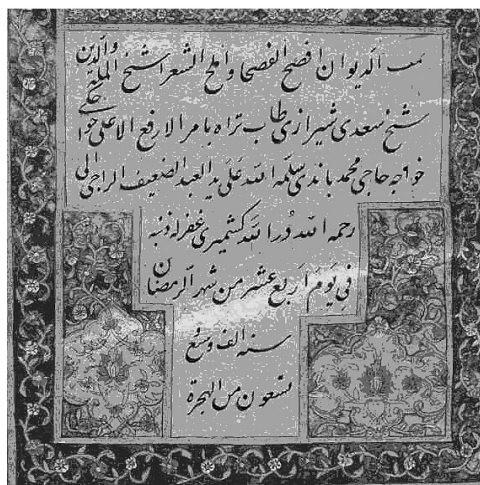 تمت الدیوان افصح الفصحا و املح الشعرا شیخ الملة والدین
شیخ سعدی شیرازی طاب ثراه بامر الارفع الاعلی
خواجه حاجی محمد باندی سلمه الله علی ید العبد الضعیف الراجی الی
رحمه الله دُر الله کشمیری غفر له ذنبه
فی یَومِ اربع عشر من شهر الرمضان
سنه الف و تسع
تسعون من الهجرة